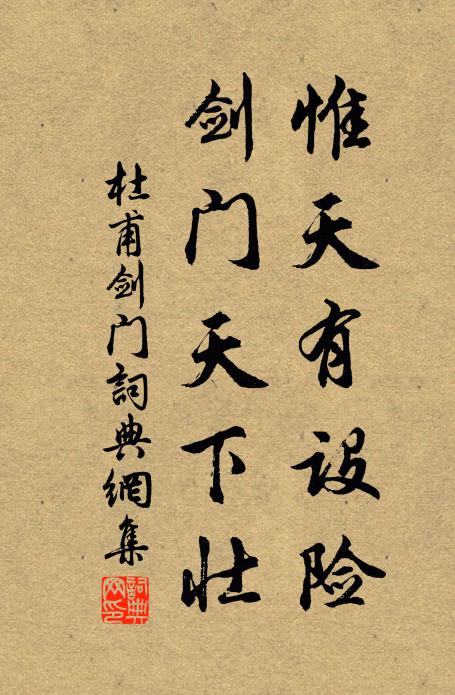 惟天有设险
剑门天下壮
杜甫剑门詞典網集
詞典网印